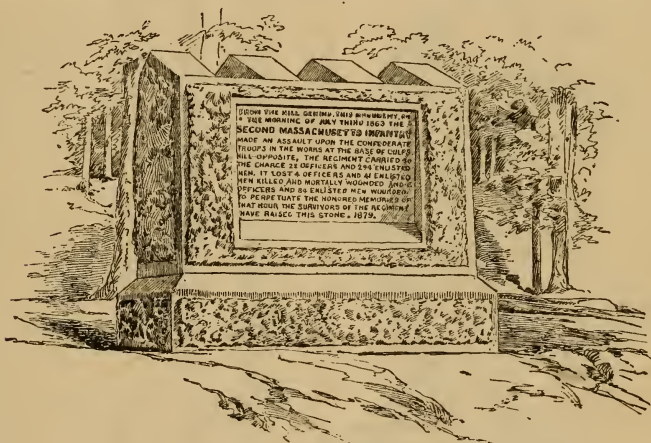 FROM THE HILL BEHIND THIS MONUMENT, ON
THE MORNING OF JULY THIRD 1863 THE
SECOND MASSACHUSETTS INFANTRY
MADE AN ASSAULT UPON THE CONFEDERATE
TROOPS IN THE WORKS AT THE BASE OF CULPS
HILL OPPOSITE, THE REGIMENT CARRIED TO
THE CHARGE 22 OFFICERS AND 294 ENLISTED
MEN, IT LOST 4 OFFICERS AND 41 ENLISTED
MEN KILLED AND MORTALLY WOUNDED AND 6
OFFICERS AND 84 ENLISTED MEN WOUNDED.
TO PERPETUATE THE HONORED MEMORIES OF
THAT HOUR THE SURVIVORS OF THE REGIMENT
HAVE RAISED THIS STONE. 1879.